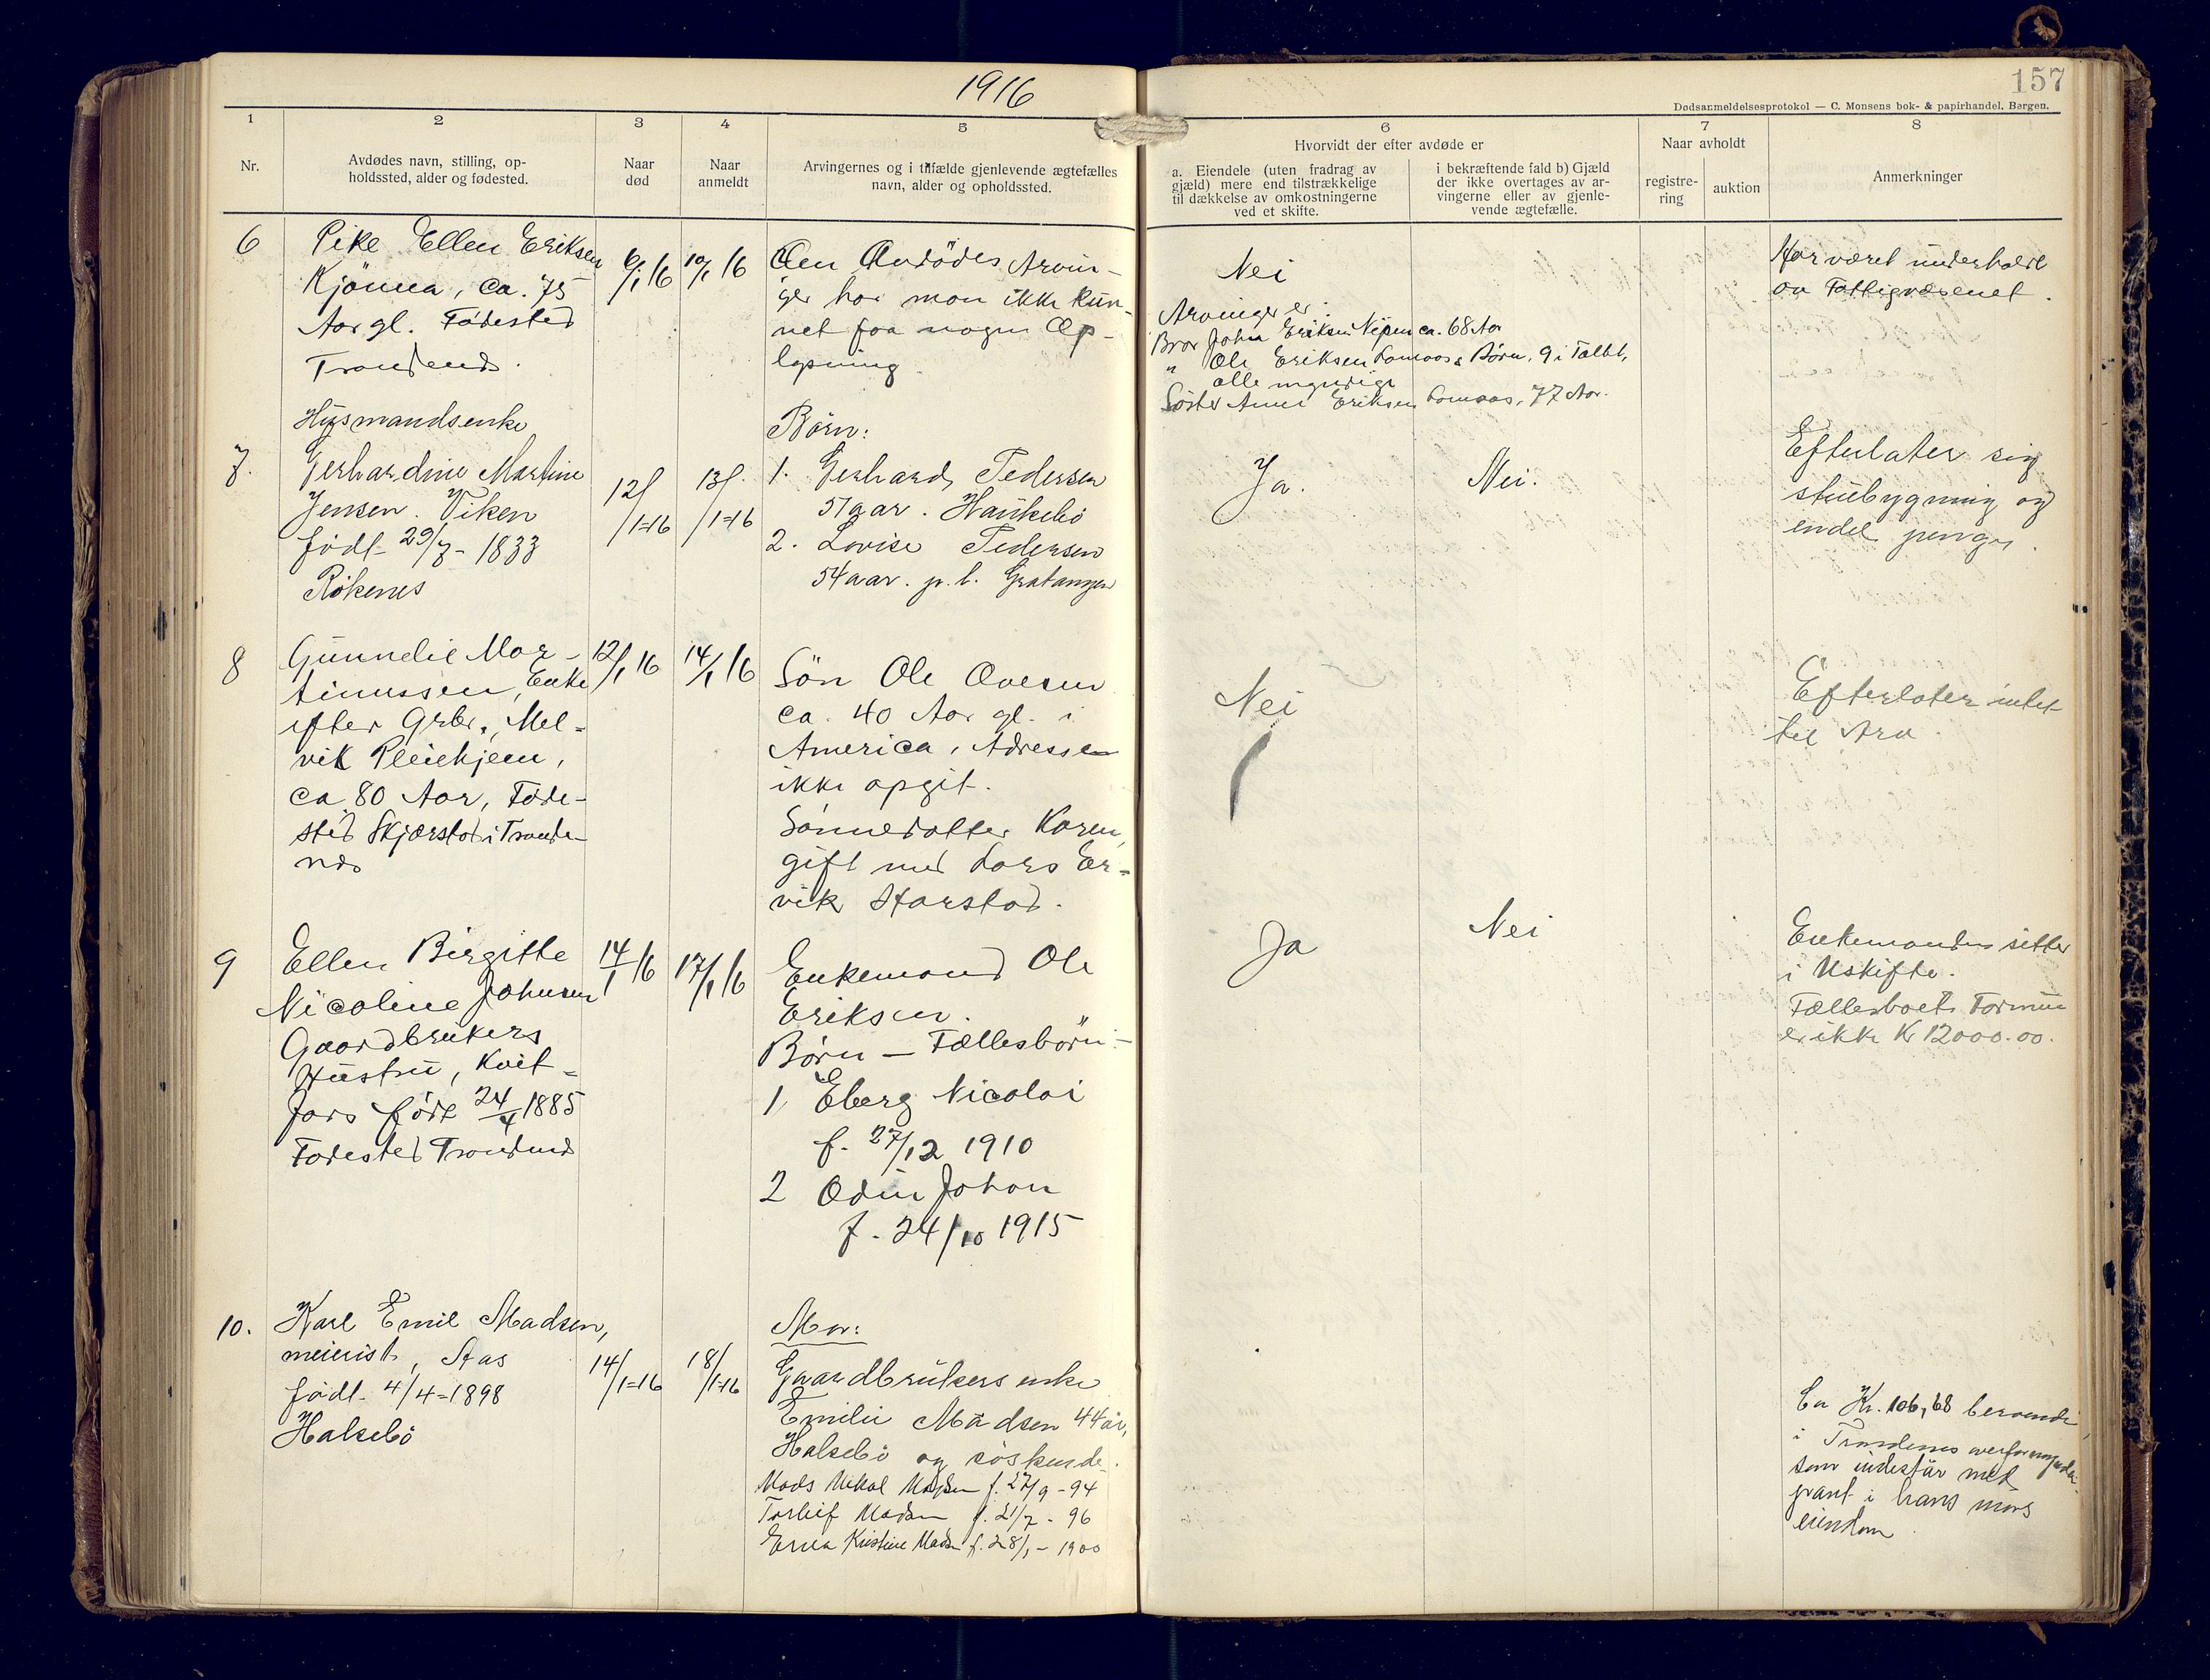 1916
157
Dødsanmeldelsesprotokol — C. Monsens bok- & papirhandel. Bergen.
1
2
3
4
5
6
7
8
Nr.
Avdødes navn, stilling, op-
holdssted, alder og fødested.
Naar
død
Naar
anmeldt
Arvingernes og i tilfælde gjenlevende ægtefælles
navn, alder og opholdssted.
Hvorvidt der efter avdøde er
a. Eiendele (uten fradrag av
gjæld) mere end tilstrækkelige
til dækkelse av omkostningerne
ved et skifte.
i bekræftende fald b) Gjæld
der ikke overtages av ar-
vingerne eller av gjenle-
vende ægtefælle.
Naar avholdt
registre-
ring
auktion
Anmerkninger
6
Pike Ellen Eriksen
Kjönna, ca. 75
Aar gl. Fødested
Trondenes.
6/1 16
10/1 16
Om Avdödes Arvin-
ger har man ikke kun-
net faa nogen Op-
lysning
Nei
Arvinger er:
Bror Johan Eriksen Nipen ca. 68 Aar
" Ole Eriksen Lomaas's Børn, 9 i Tallet,
alle myndige
Söster Anne Eriksen Lomaas, 77 Aar.
Har været underholdt
av Fattigvæsenet.
7.
Husmandsenke
Gerhardine Martine
Jensen. Viken
født 29/7 - 1833
Rökenes
12/1-16
13/1-16
Børn:
1. Gerhard Pedersen
57 aar. Haukebö
2. Lovise Pedersen
54 aar. p. t. Gratangen
Ja.
Nei.
Efterlater sig
stuebygning og
endel penger.
8
Gunnelie Mar-
tinussen, Enke
efter Grbr., Mel-
vik Pleiehjem,
ca 80 Aar, Føde-
sted Skjærstad i Tronde-
nes
12/1 16
14/1 16
Sön Ole Ovesen
ca. 40 Aar gl. i
America, Adressen
ikke opgit.
Sønnedatter Karen,
gift med Lars Er-
vik Harstad.
Nei
Efterlater intet
til Arv.
9
Ellen Birgitte
Nicoline Johnsen
Gaardbrukers
Hustru, Kvit-
fors født 24/4 1885
Fødested Trondenes
14/1 16
17/1 16
Enkemand Ole
Eriksen.
Børn — Fællesbörn -
1, Eberg Nicolai
f. 27/12 1910
2 Odin Johan
f. 24/10 1915
Ja
Nei
Enkemanden sitter
i Uskifte.
Fællesboets Formue
er ikke Kr 12000.00.
10.
Karl Emil Madsen,
meierist, Aas
født 4/4-1898
Halsebö
14/1-16
18/1-16
Mor:
Gaardbrukers enke
Emilie Madsen 44 år,
Halsebö og söskende.
Mads Mikal Madsen f. 27/9 - 94
Torleif Madsen f. 21/7 - 96
Erna Kristine Madsen f. 28/1 - 1900
Ca Kr. 106,68 beroende
i Trondenes overformynderi
som indestår med
pant i hans mors
eiendom